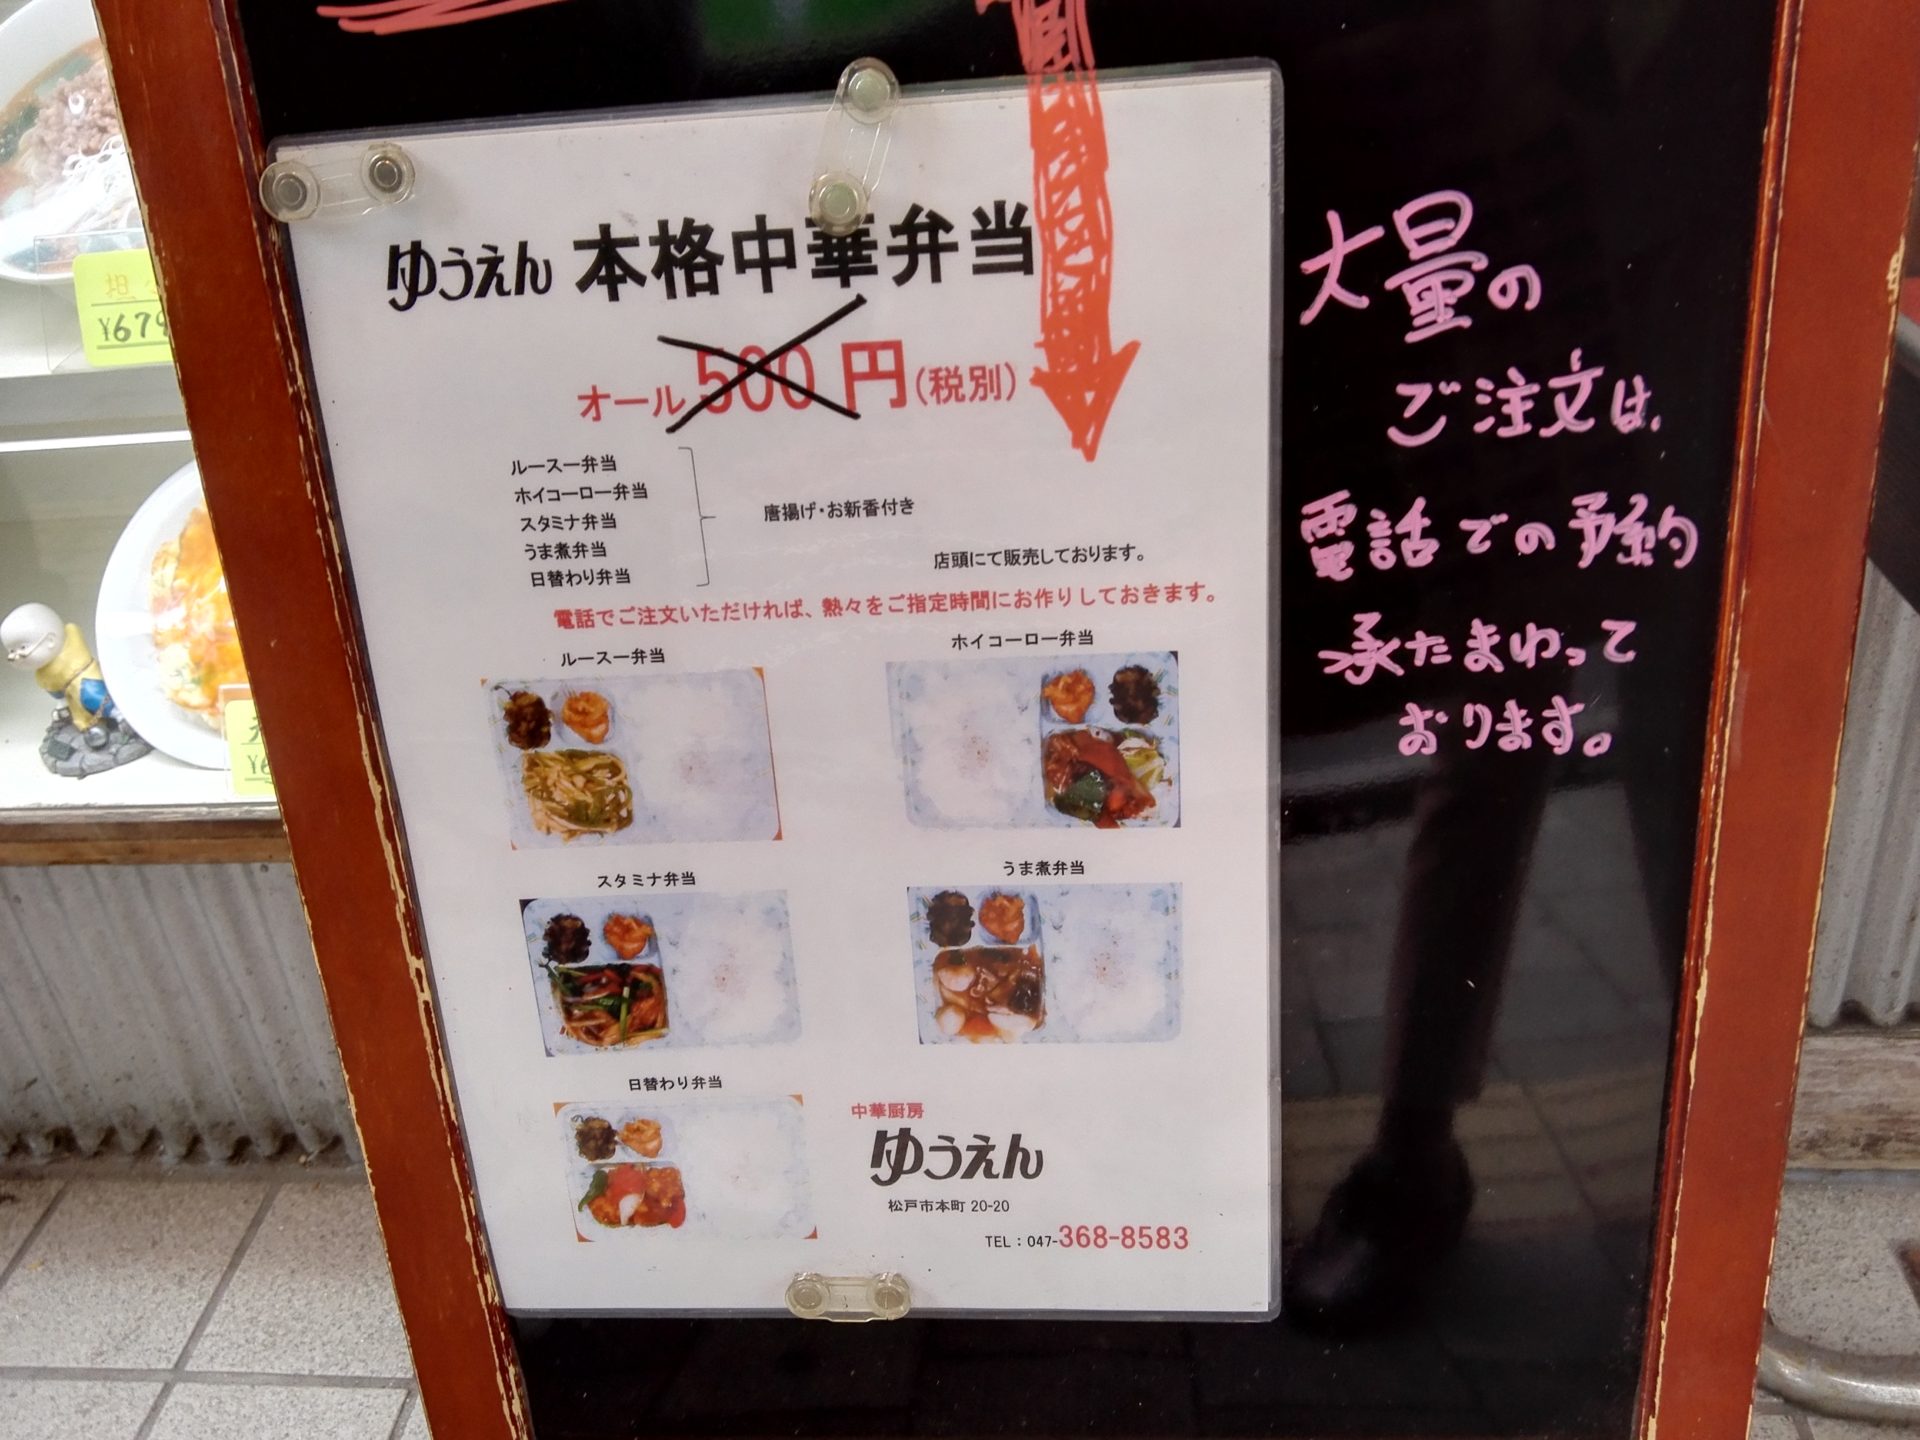 ゆうえん 本格中華弁当
オール 500 円(税別)
ルースー弁当
ホイコーロー弁当
スタミナ弁当
うま煮弁当
日替わり弁当
唐揚げ・お新香付き
店頭にて販売しております。
電話でご注文いただければ、熱々をご指定時間にお作りしておきます。
ルースー弁当
ホイコーロー弁当
スタミナ弁当
うま煮弁当
日替わり弁当
中華厨房
ゆうえん
松戸市本町 20-20
TEL：047-368-8583
大量の
ご注文は、
電話での予約
承たまわって
おります。
担
¥679